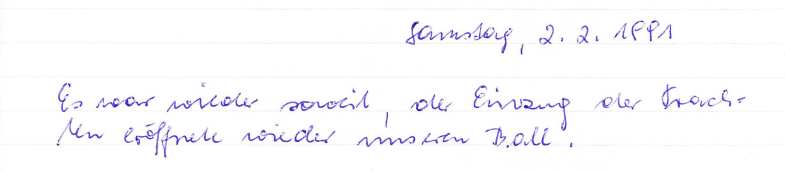 Samstag, 2. 2. 1991
Es war wieder soweit, der Einzug der Trach-
ten eröffnete wieder unseren Ball.